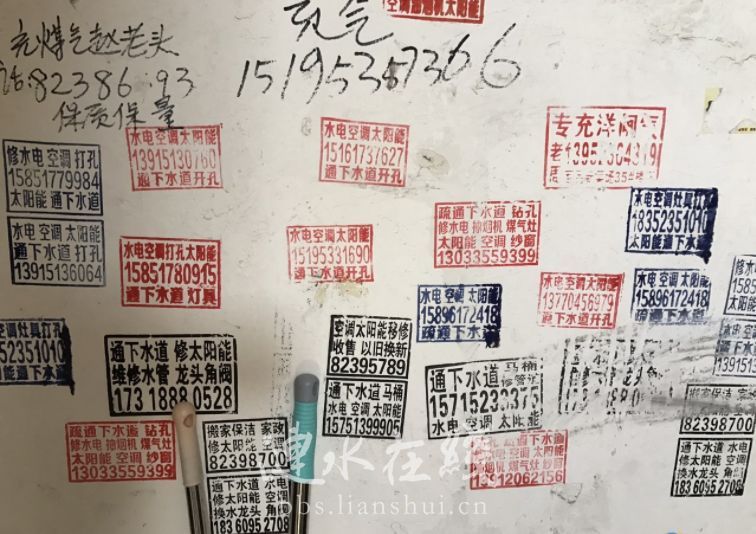 空调抽烟机太阳能
充煤气赵老头
82386.93
保质保量
充气
15195357366
修水电 空调 打孔
15851779984
太阳能 通下水道
水电空调太阳能
13915130760
通下水道开孔
水电空调太阳能
15161737627
通下水道开孔
专充洋河气
老
周
水电 空调 太阳能
通下水道 打孔
13915136064
水电空调打孔太阳能
15851780915
通下水道 灯具
水电空调太阳能
15195331690
通下水道开孔
疏通下水道 钻孔
修水电 抽烟机 煤气灶
太阳能 空调 纱窗
13033559399
水电空调灶具打孔
18352351010
太阳能通下水道
水电 空调 太阳能
15896172418
疏通下水道
水电空调太阳能
13770456979
通下水道开孔
水电 空调 太阳能
15896172418
疏通下水道
空调灶具打孔
52351010
太阳能通下水道
通下水道 修太阳能
维修水管 龙头角阀
173 1888 0528
空调太阳能移修
收售 以旧换新
82395789
通下水道 马桶
水电空调 太阳能
15751399905
通下水道 马桶
15715233375
水电空调 太阳能
疏通下水道 钻孔
修水电 抽烟机 煤气灶
太阳能 空调 纱窗
13033559399
搬家 保洁 家政
修太阳能 空调
82398700
修太阳能 水电 空调
换水龙头 角阀
18360952708
疏通下水道
修烟机 煤气灶
空调 纱窗
13912062156
搬家 保洁 家政
修太阳能 空调
82398700
修太阳能 水电 空调
换水龙头 角阀
183 6095 2708
涟水在线
bs.lianshui.cn